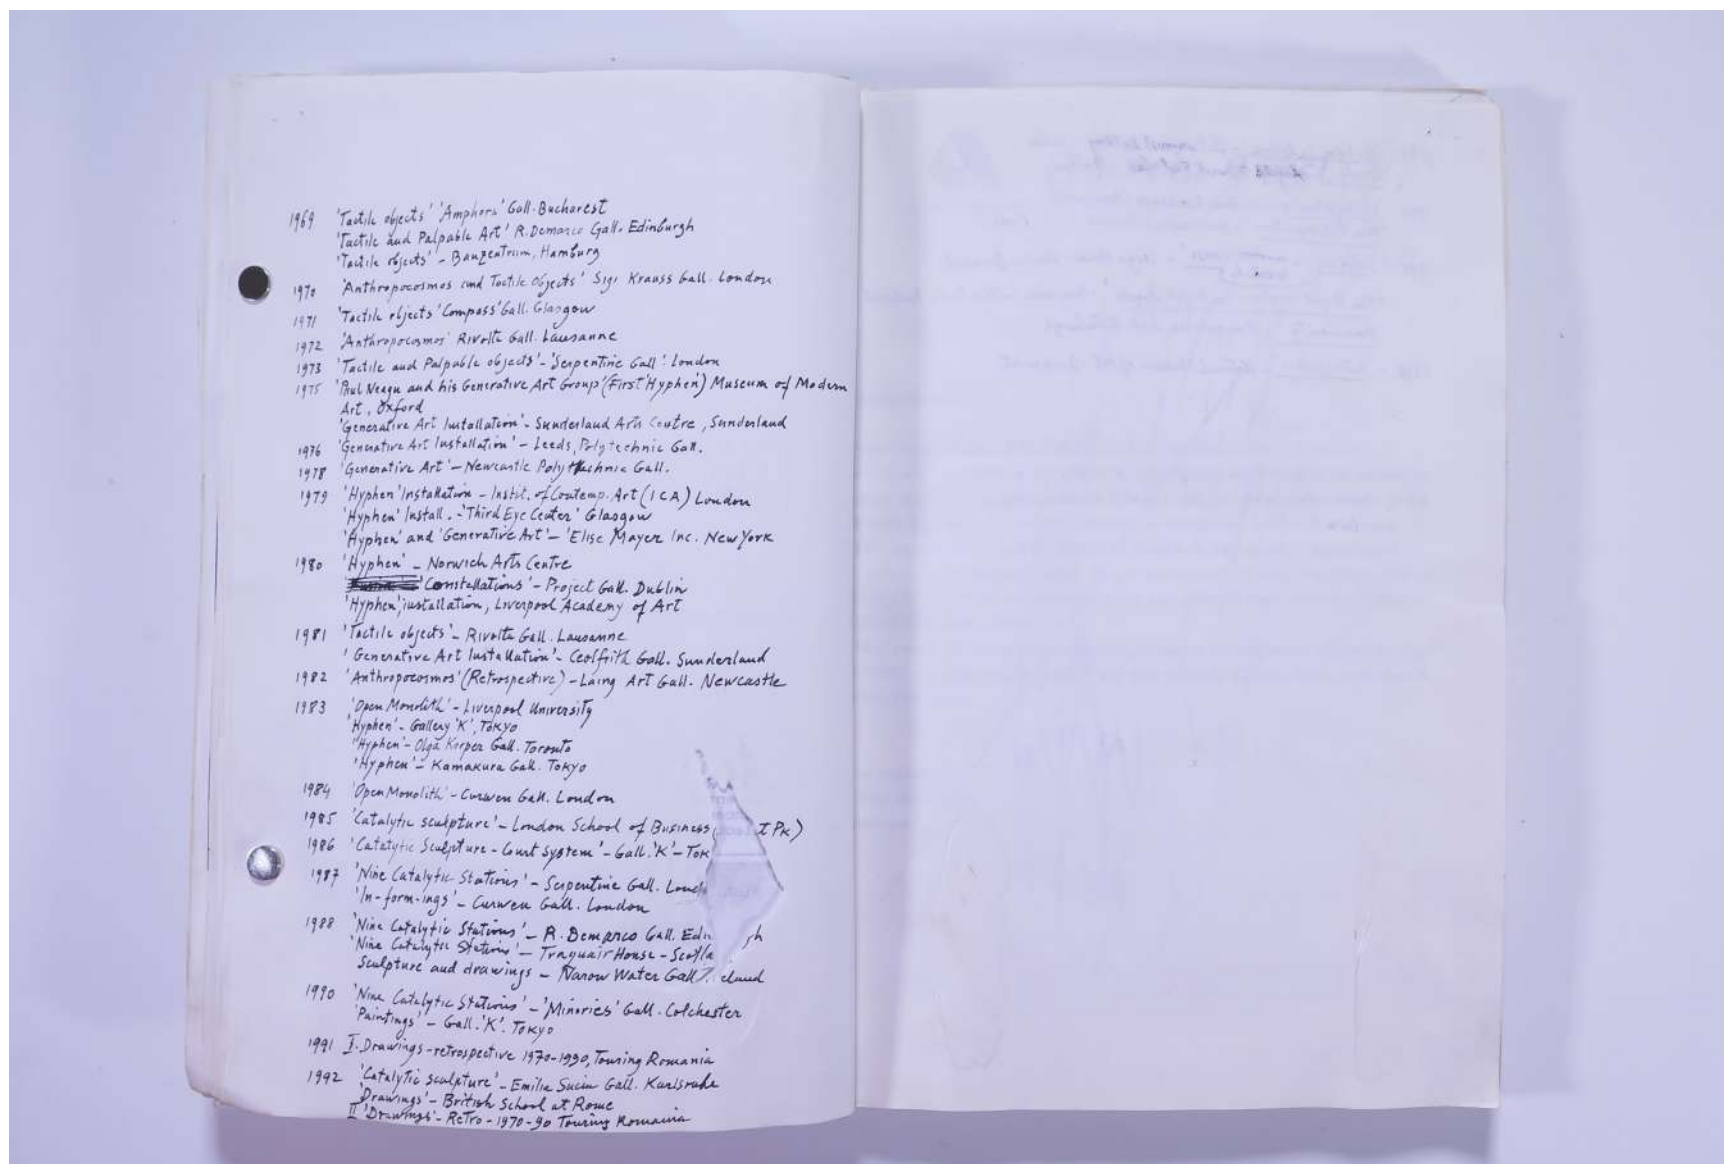 1969 'Tactile objects' 'Amphora' Gall. Bucharest
'Tactile and Palpable Art' R. Demarco Gall. Edinburgh
'Tactile objects' - Bauzentrum, Hamburg
1970 'Anthropocosmos and Tactile Objects' Sigi Krauss Gall. London
1971 'Tactile objects' Compass' Gall. Glasgow
1972 'Anthropocosmos' Rivolta Gall. Lausanne
1973 'Tactile and Palpable objects' - 'Serpentine Gall'. London
1975 'Paul Neagu and his Generative Art Group' (First 'Hyphen') Museum of Modern
Art, Oxford
'Generative Art Installation' - Sunderland Arts Centre, Sunderland
1976 'Generative Art Installation' - Leeds, Polytechnic Gall.
1978 'Generative Art' - Newcastle Polytechnic Gall.
1979 'Hyphen' Installation - Instit. of Contemp. Art (ICA) London
'Hyphen' Install. - 'Third Eye Center' Glasgow
'Hyphen' and 'Generative Art' - 'Elise Mayer Inc. New York
1980 'Hyphen' - Norwich Arts Centre
'Constellations' - Project Gall. Dublin
'Hyphen', installation, Liverpool Academy of Art
1981 'Tactile objects' - Rivolta Gall. Lausanne
'Generative Art Installation' - Ceolfrith Gall. Sunderland
1982 'Anthropocosmos' (Retrospective) - Laing Art Gall. Newcastle
1983 'Open Monolith' - Liverpool University
'Hyphen' - Gallery 'K', Tokyo
'Hyphen' - Olga Korper Gall. Toronto
'Hyphen' - Kamakura Gall. Tokyo
1984 'Open Monolith' - Curwen Gall. London
1985 'Catalytic sculpture' - London School of Business ( t Pk)
1986 'Catalytic Sculpture - Court System' - Gall. 'K' - Tok
1987 'Nine Catalytic Stations' - Serpentine Gall. Lond
'In-form-ings' - Curwen Gall. London
1988 'Nine Catalytic Stations' - R. Demarco Gall. Edin gh
'Nine Catalytic Stations' - Traquair House - Scotla
Sculpture and drawings - Narow Water Gall. eland
1990 'Nine Catalytic Stations' - 'Minories' Gall. Colchester
'Paintings' - Gall. 'K'. Tokyo
1991 I. Drawings - retrospective 1970-1990, Touring Romania
1992 'Catalytic sculpture' - Emilia Suciu Gall. Karlsruhe
'Drawings' - British School at Rome
II 'Drawings' - Retro - 1970-90 Touring Romania